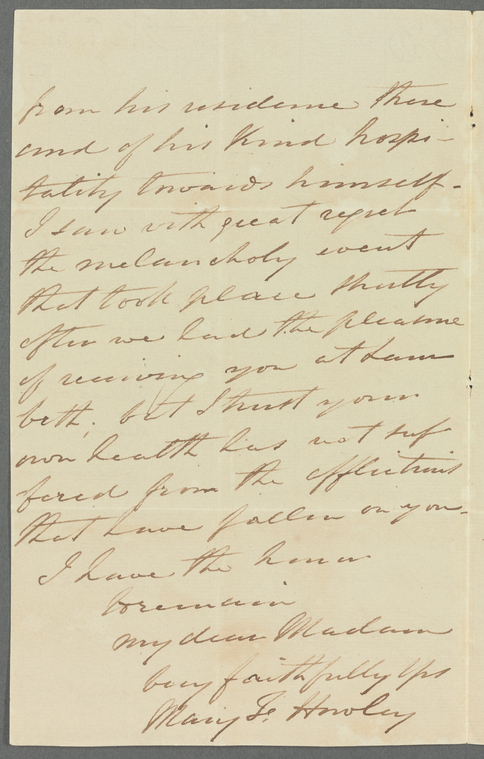 from his residence there
and of his kind hospi-
tality towards himself.
I saw with great regret
the melancholy event
that took place shortly
after we had the pleasure
of receiving you at Lam
beth; but I trust your
own health has not suf
fered from the afflictions
that have fallen on you.
I have the honor
to remain
my dear Madam
very faithfully yrs
Mary F. Howley